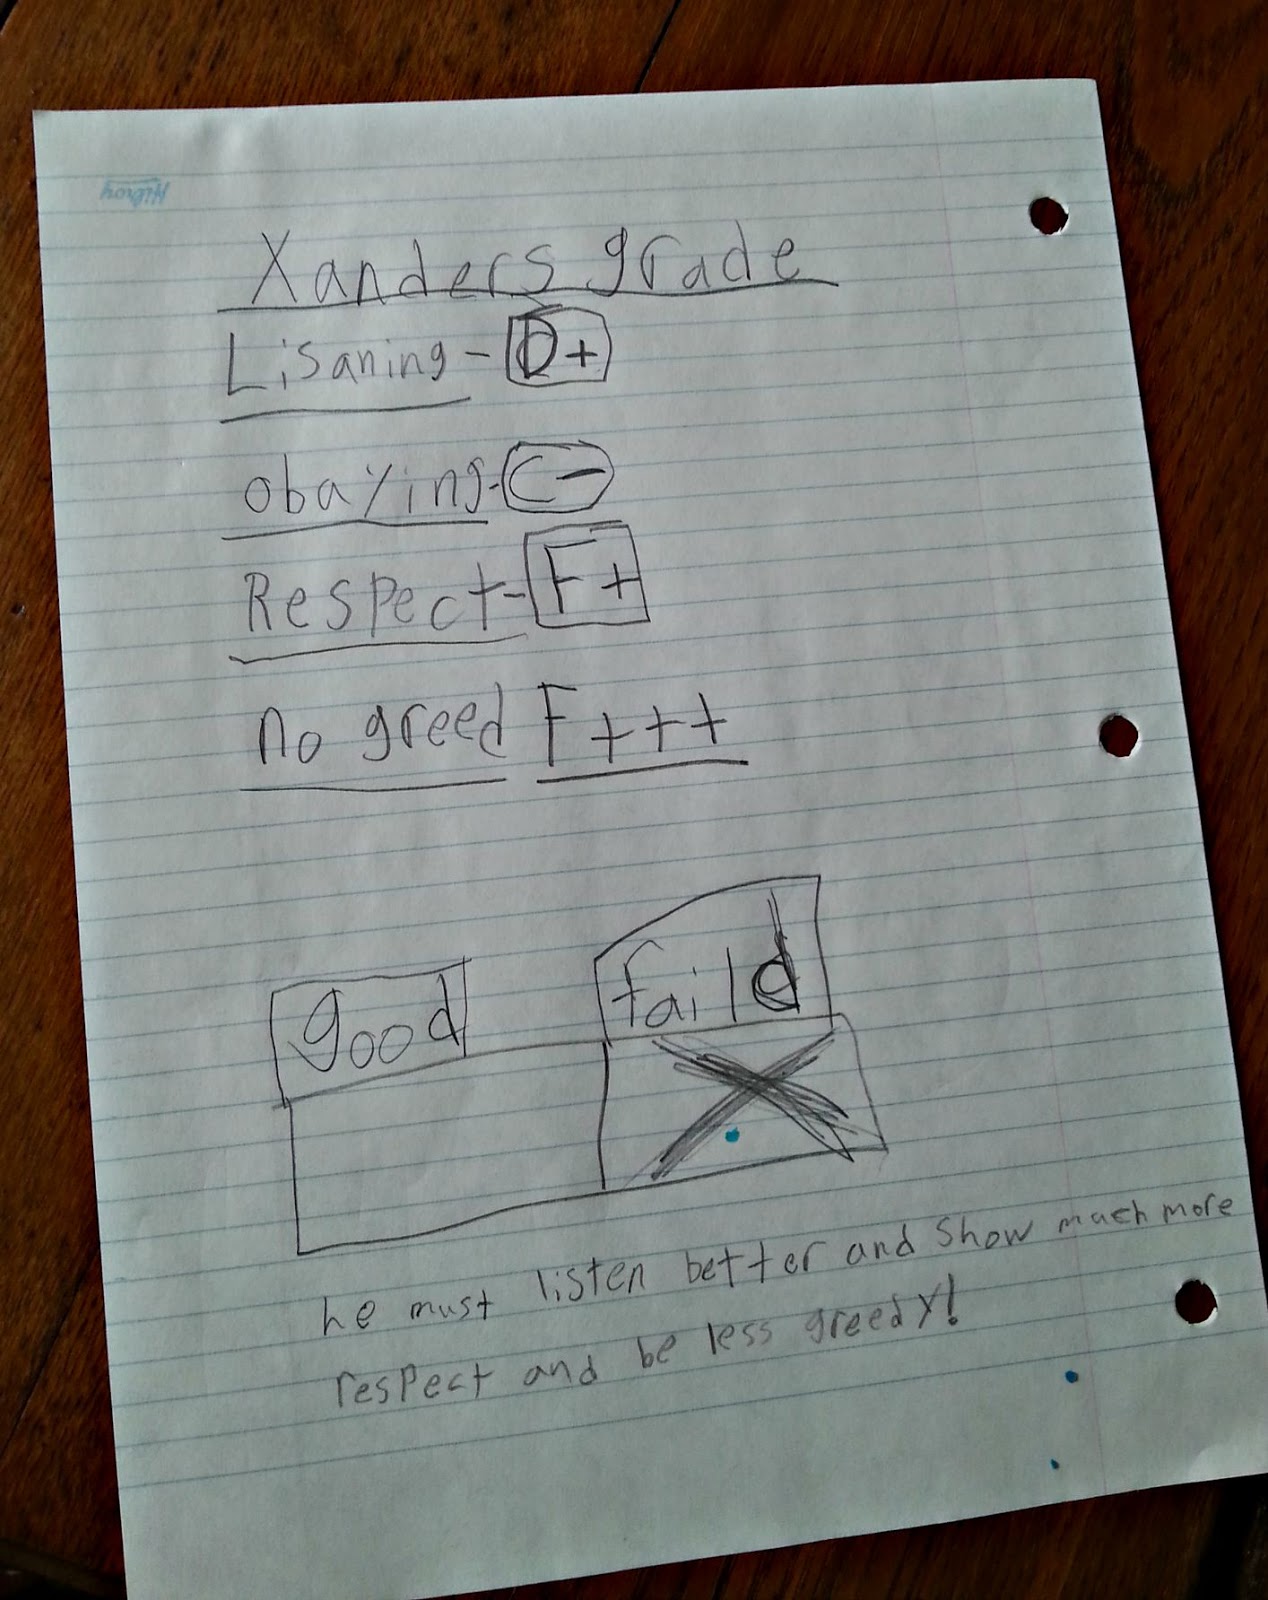 Hilroy
Xanders grade
Lisaning - D+
obaying - C-
Respect - F+
no greed F+++
good faild
he must listen better and show much more
respect and be less greedy!